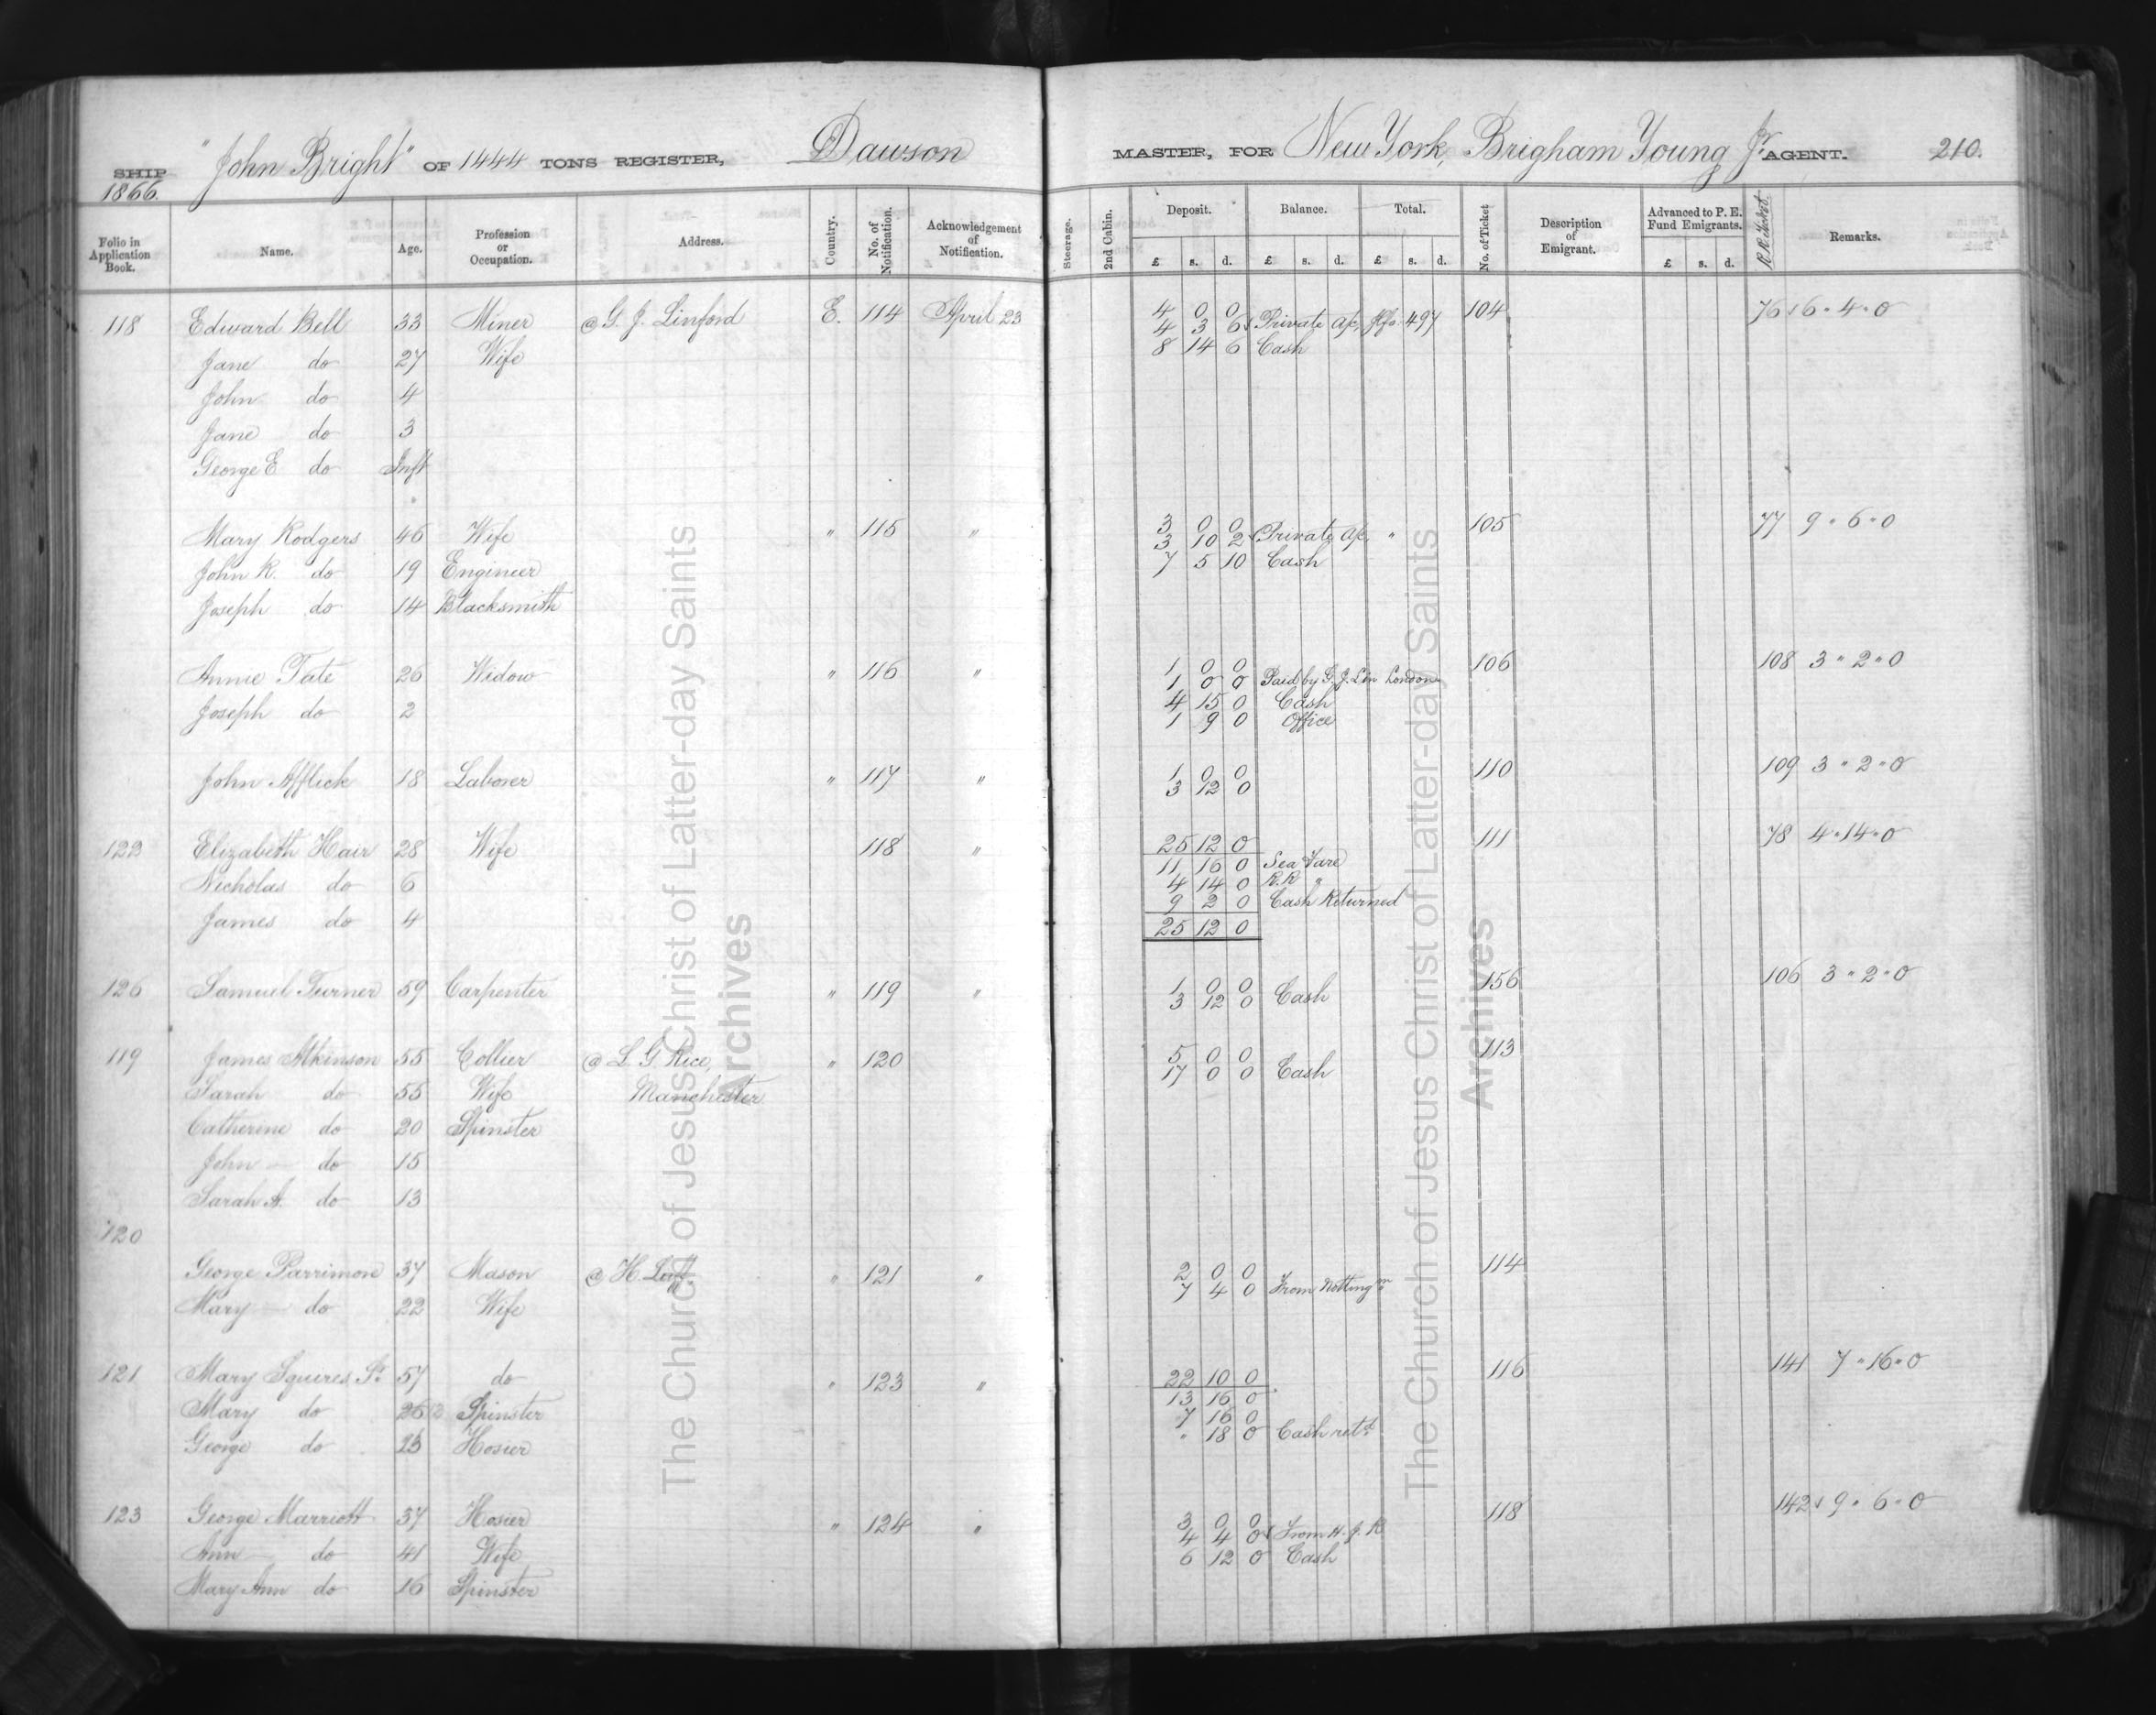 SHIP "John Bright" OF 1444 TONS REGISTER, Dawson MASTER, FOR New York, Brigham Young Jr AGENT. 210.
1866.
Folio in Application Book. Name. Age. Profession or Occupation. Address. Country. No. of Notification. Acknowledgement of Notification. Steerage. 2nd Cabin. Deposit. Balance. Total. No. of Ticket Description of Emigrant. Advanced to P. E. Fund Emigrants. R.R. Ticket. Remarks.
£ s. d. £ s. d. £ s. d. £ s. d.
118 Edward Bell 33 Miner @ G. J. Linford E. 114 April 23 4 0 0 104 76 6 " 4 " 0
4 3 6 Private a/c, 497
Jane do 27 Wife 8 14 6 Cash
John do 4
Jane do 3
George E do Inft
Mary Rodgers 46 Wife " 115 " 3 0 0 105 77 9 " 6 " 0
3 10 2 Private a/c, "
John R. do 19 Engineer 7 5 10 Cash
Joseph do 14 Blacksmith
Annie Tate 26 Widow " 116 " 1 0 0 106 108 3 " 2 " 0
1 0 0 Paid by G. J. Lin London
Joseph do 2 4 15 0 Cash
1 9 0 Office
John Afflick 18 Laborer " 117 " 1 0 0 110 109 3 " 2 " 0
3 12 0
122 Elizabeth Hair 28 Wife 118 " 25 12 0 111 78 4 " 14 " 0
11 16 0 Sea Fare
Nicholas do 6 4 14 0 R.R "
9 2 0 Cash Returned
James do 4 25 12 0
126 Samuel Turner 59 Carpenter " 119 " 1 0 0 156 106 3 " 2 " 0
3 12 0 Cash
119 James Atkinson 55 Collier @ L G Rice, " 120 5 0 0 113
17 0 0 Cash
Sarah do 55 Wife Manchester
Catherine do 20 Spinster
John do 15
Sarah A. do 13
120
George Parrimore 37 Mason @ H. " 121 " 2 0 0 114
7 4 0 From Notting m
Mary do 22 Wife
121 Mary Squires Sr 57 do " 123 " 22 10 0 116 141 7 " 16 " 0
13 16 0
Mary do 26 Spinster 7 16 0
George do 23 Hosier " 18 0 Cash retd
123 George Marriott 37 Hosier " 124 " 3 0 0 118 142 9 " 6 " 0
4 4 0 From H. J. R
Ann do 41 Wife 6 12 0 Cash
Mary Ann do 16 Spinster
The Church of Jesus Christ of Latter-day Saints
Archives
The Church of Jesus Christ of Latter-day Saints
Archives